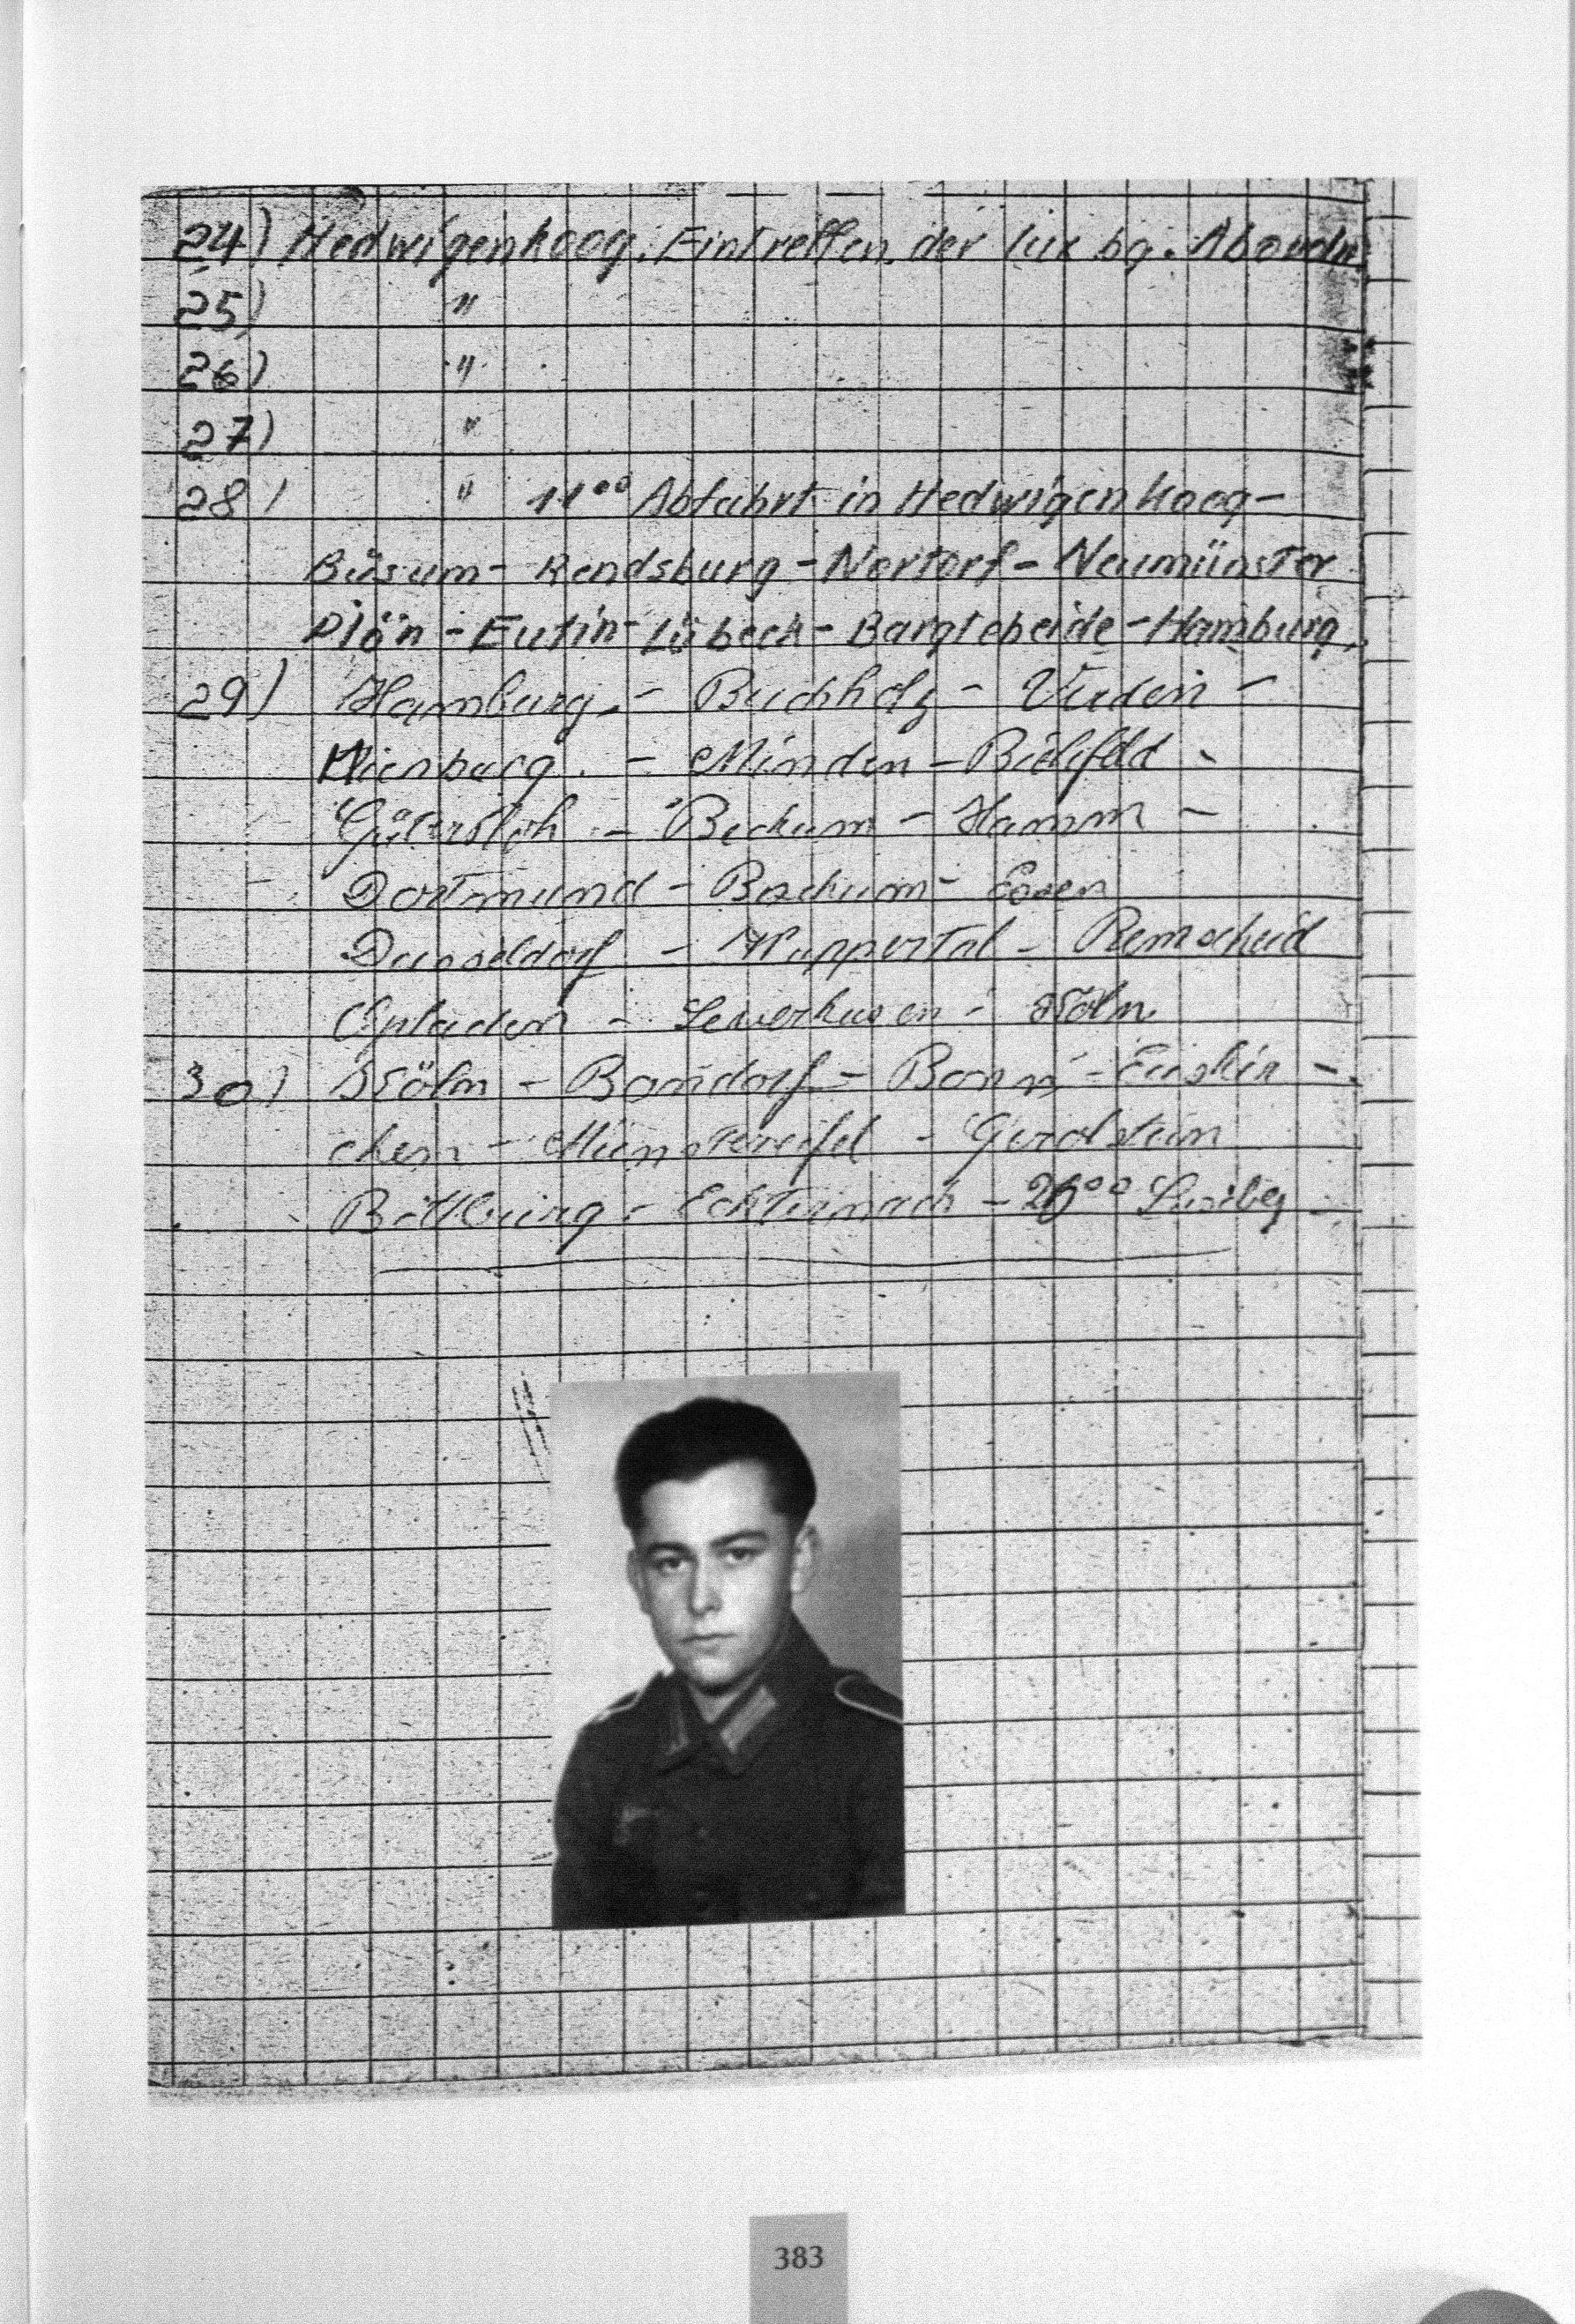 24) Hedwigenkoog. Eintreffen der lux bg.
25) "
26) "
27) "
28) " 11⁰⁰ Abfahrt in Hedwigenkoog-
Büsum - Rendsburg - Nortorf - Neumünster
Plön - Eutin - Lübeck - Bargteheide - Hamburg
29) Hamburg - Buchholz - Verden -
Nienburg - Minden - Bielefeld -
Gütersloh - Beckum - Hamm -
Dortmund - Bochum - Essen
Dusseldorf - Wuppertal - Remscheid
Opladen - Leverkusen - Köln
30) Köln - Bonn - Euskir -
chen - Münstereifel - Gerolstein
Bittburg - Echternach - 20⁰⁰ Luxbg
383